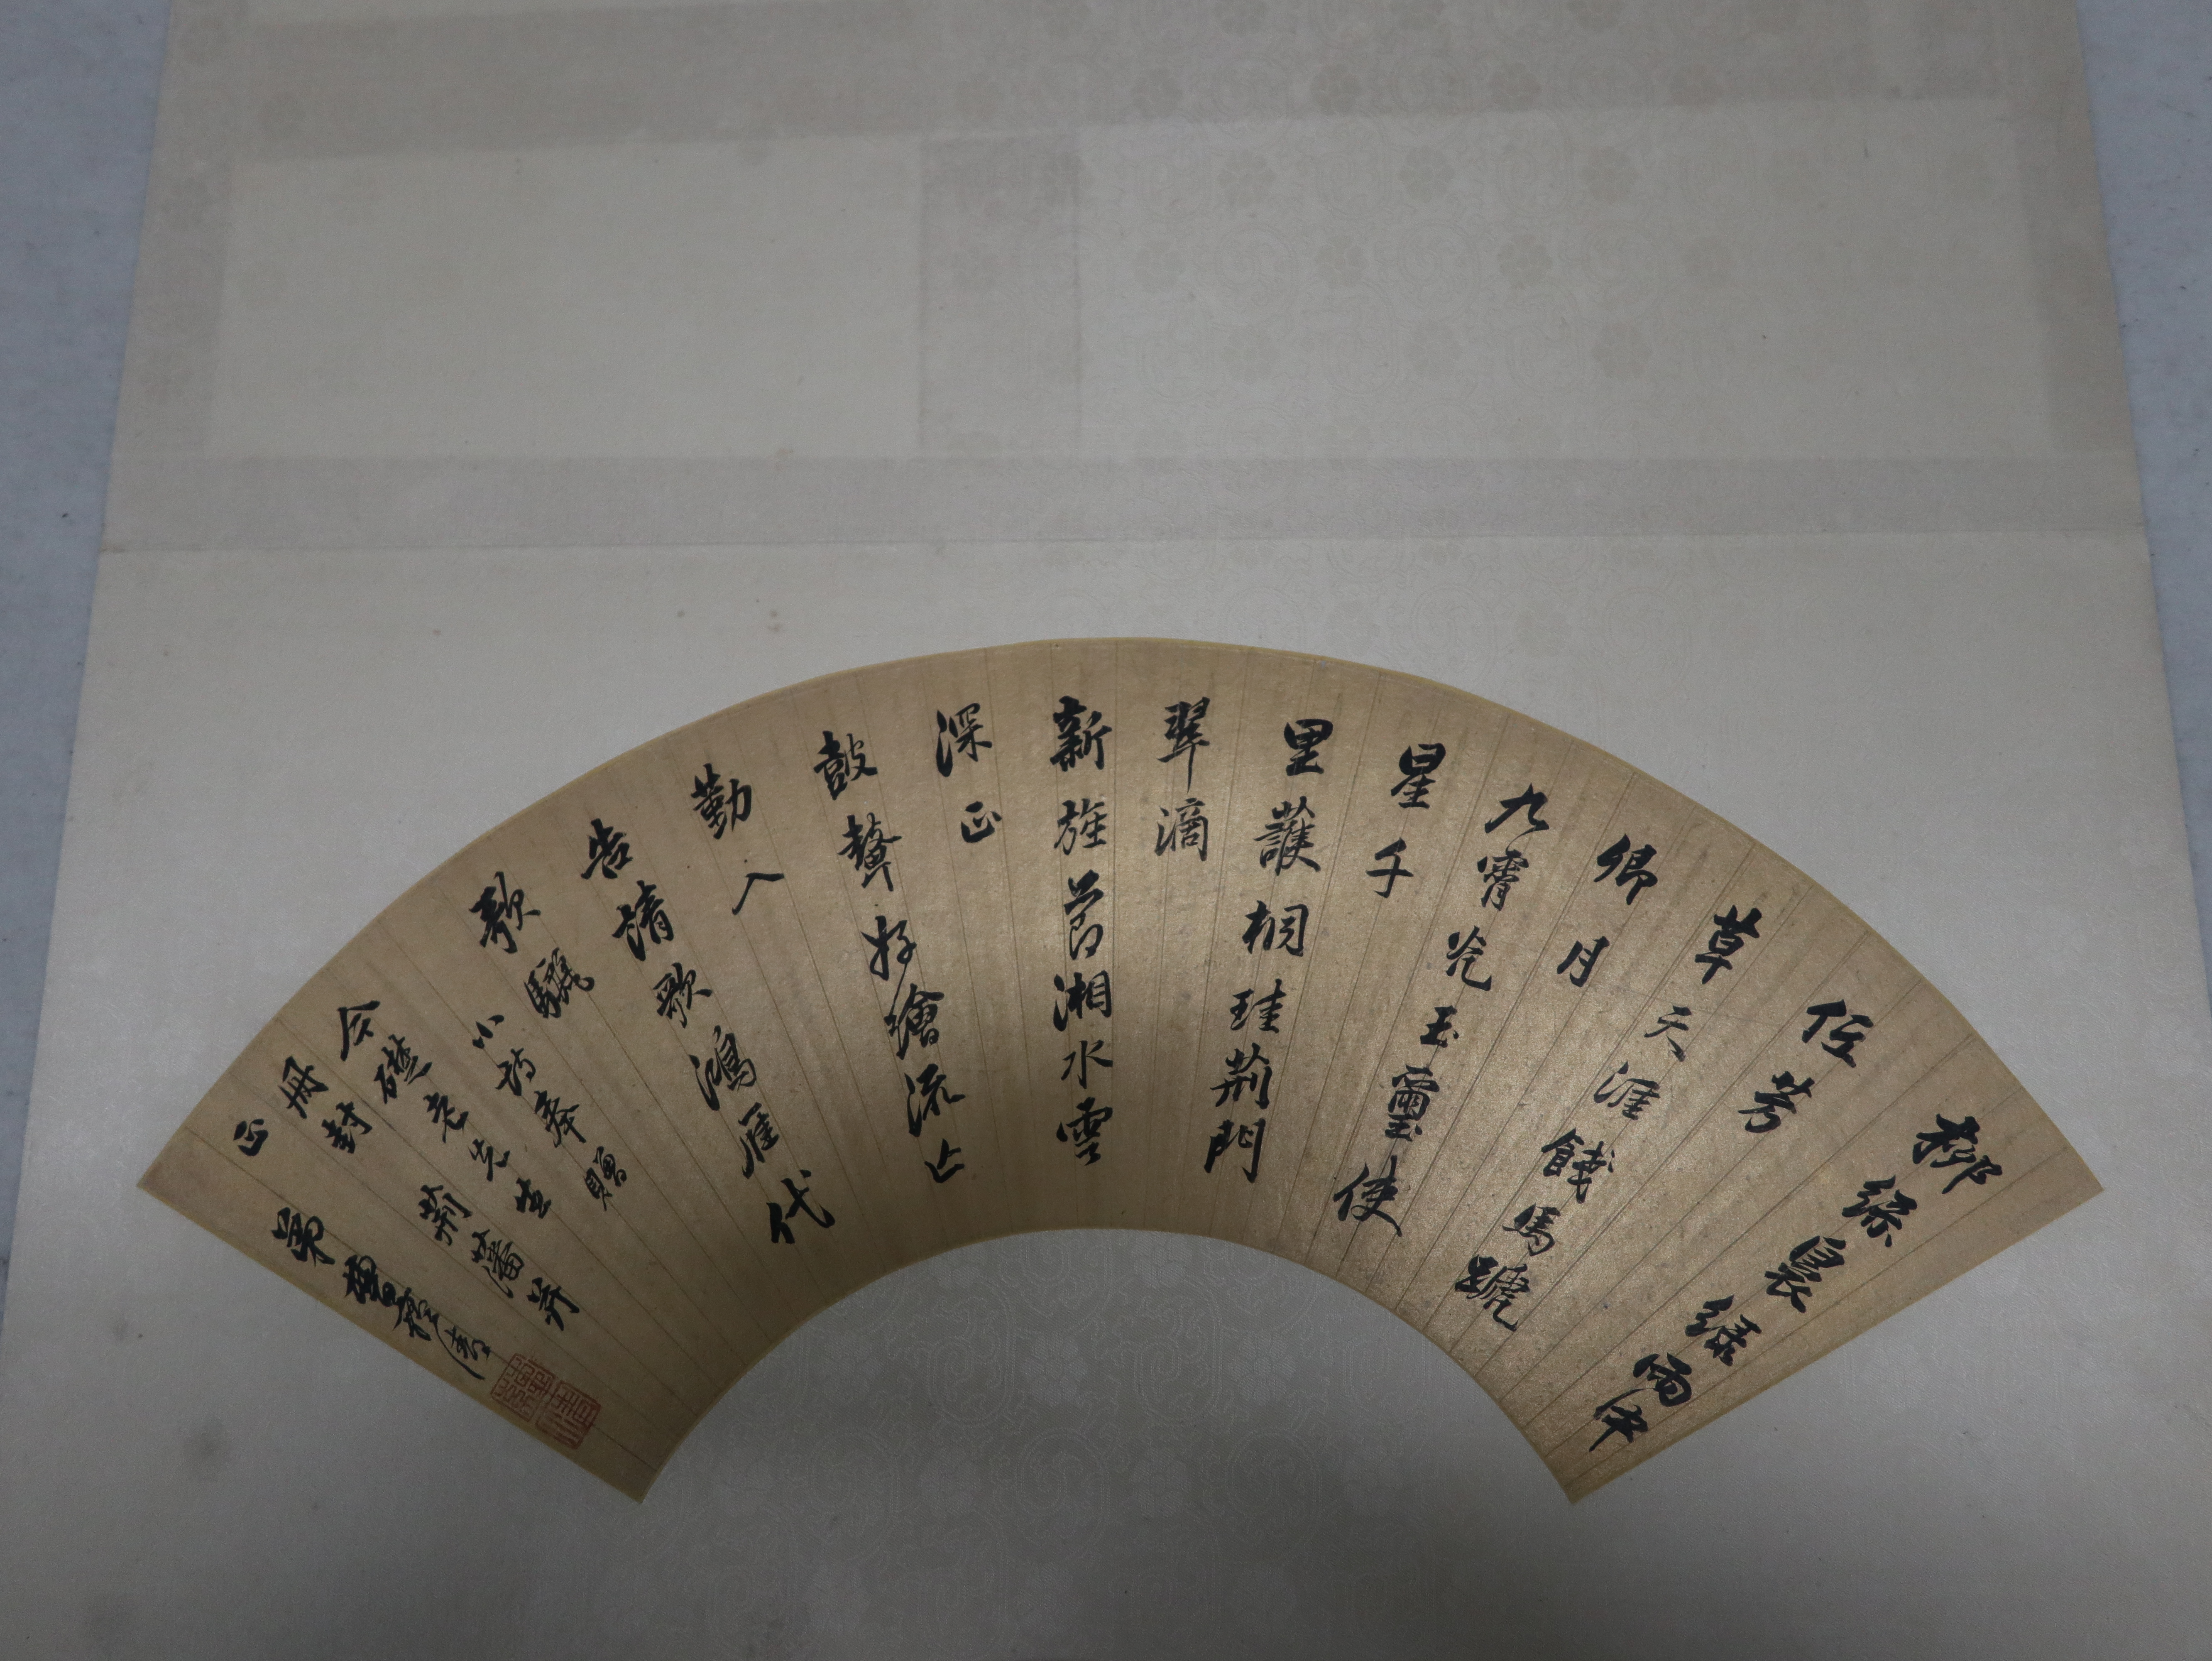 柳絲晨綠雨中
低芳
草天涯餞馬蹏
卿月
九霄光玉璽使
星千
里護桐珪荊門
翠滴
新旌節湘水雲
深正
鼓鼙好繪流亡
勤入
告請歌鴻雁代
歌驪
小詩奉贈
今礎老先生
冊封荊藩并
正 弟